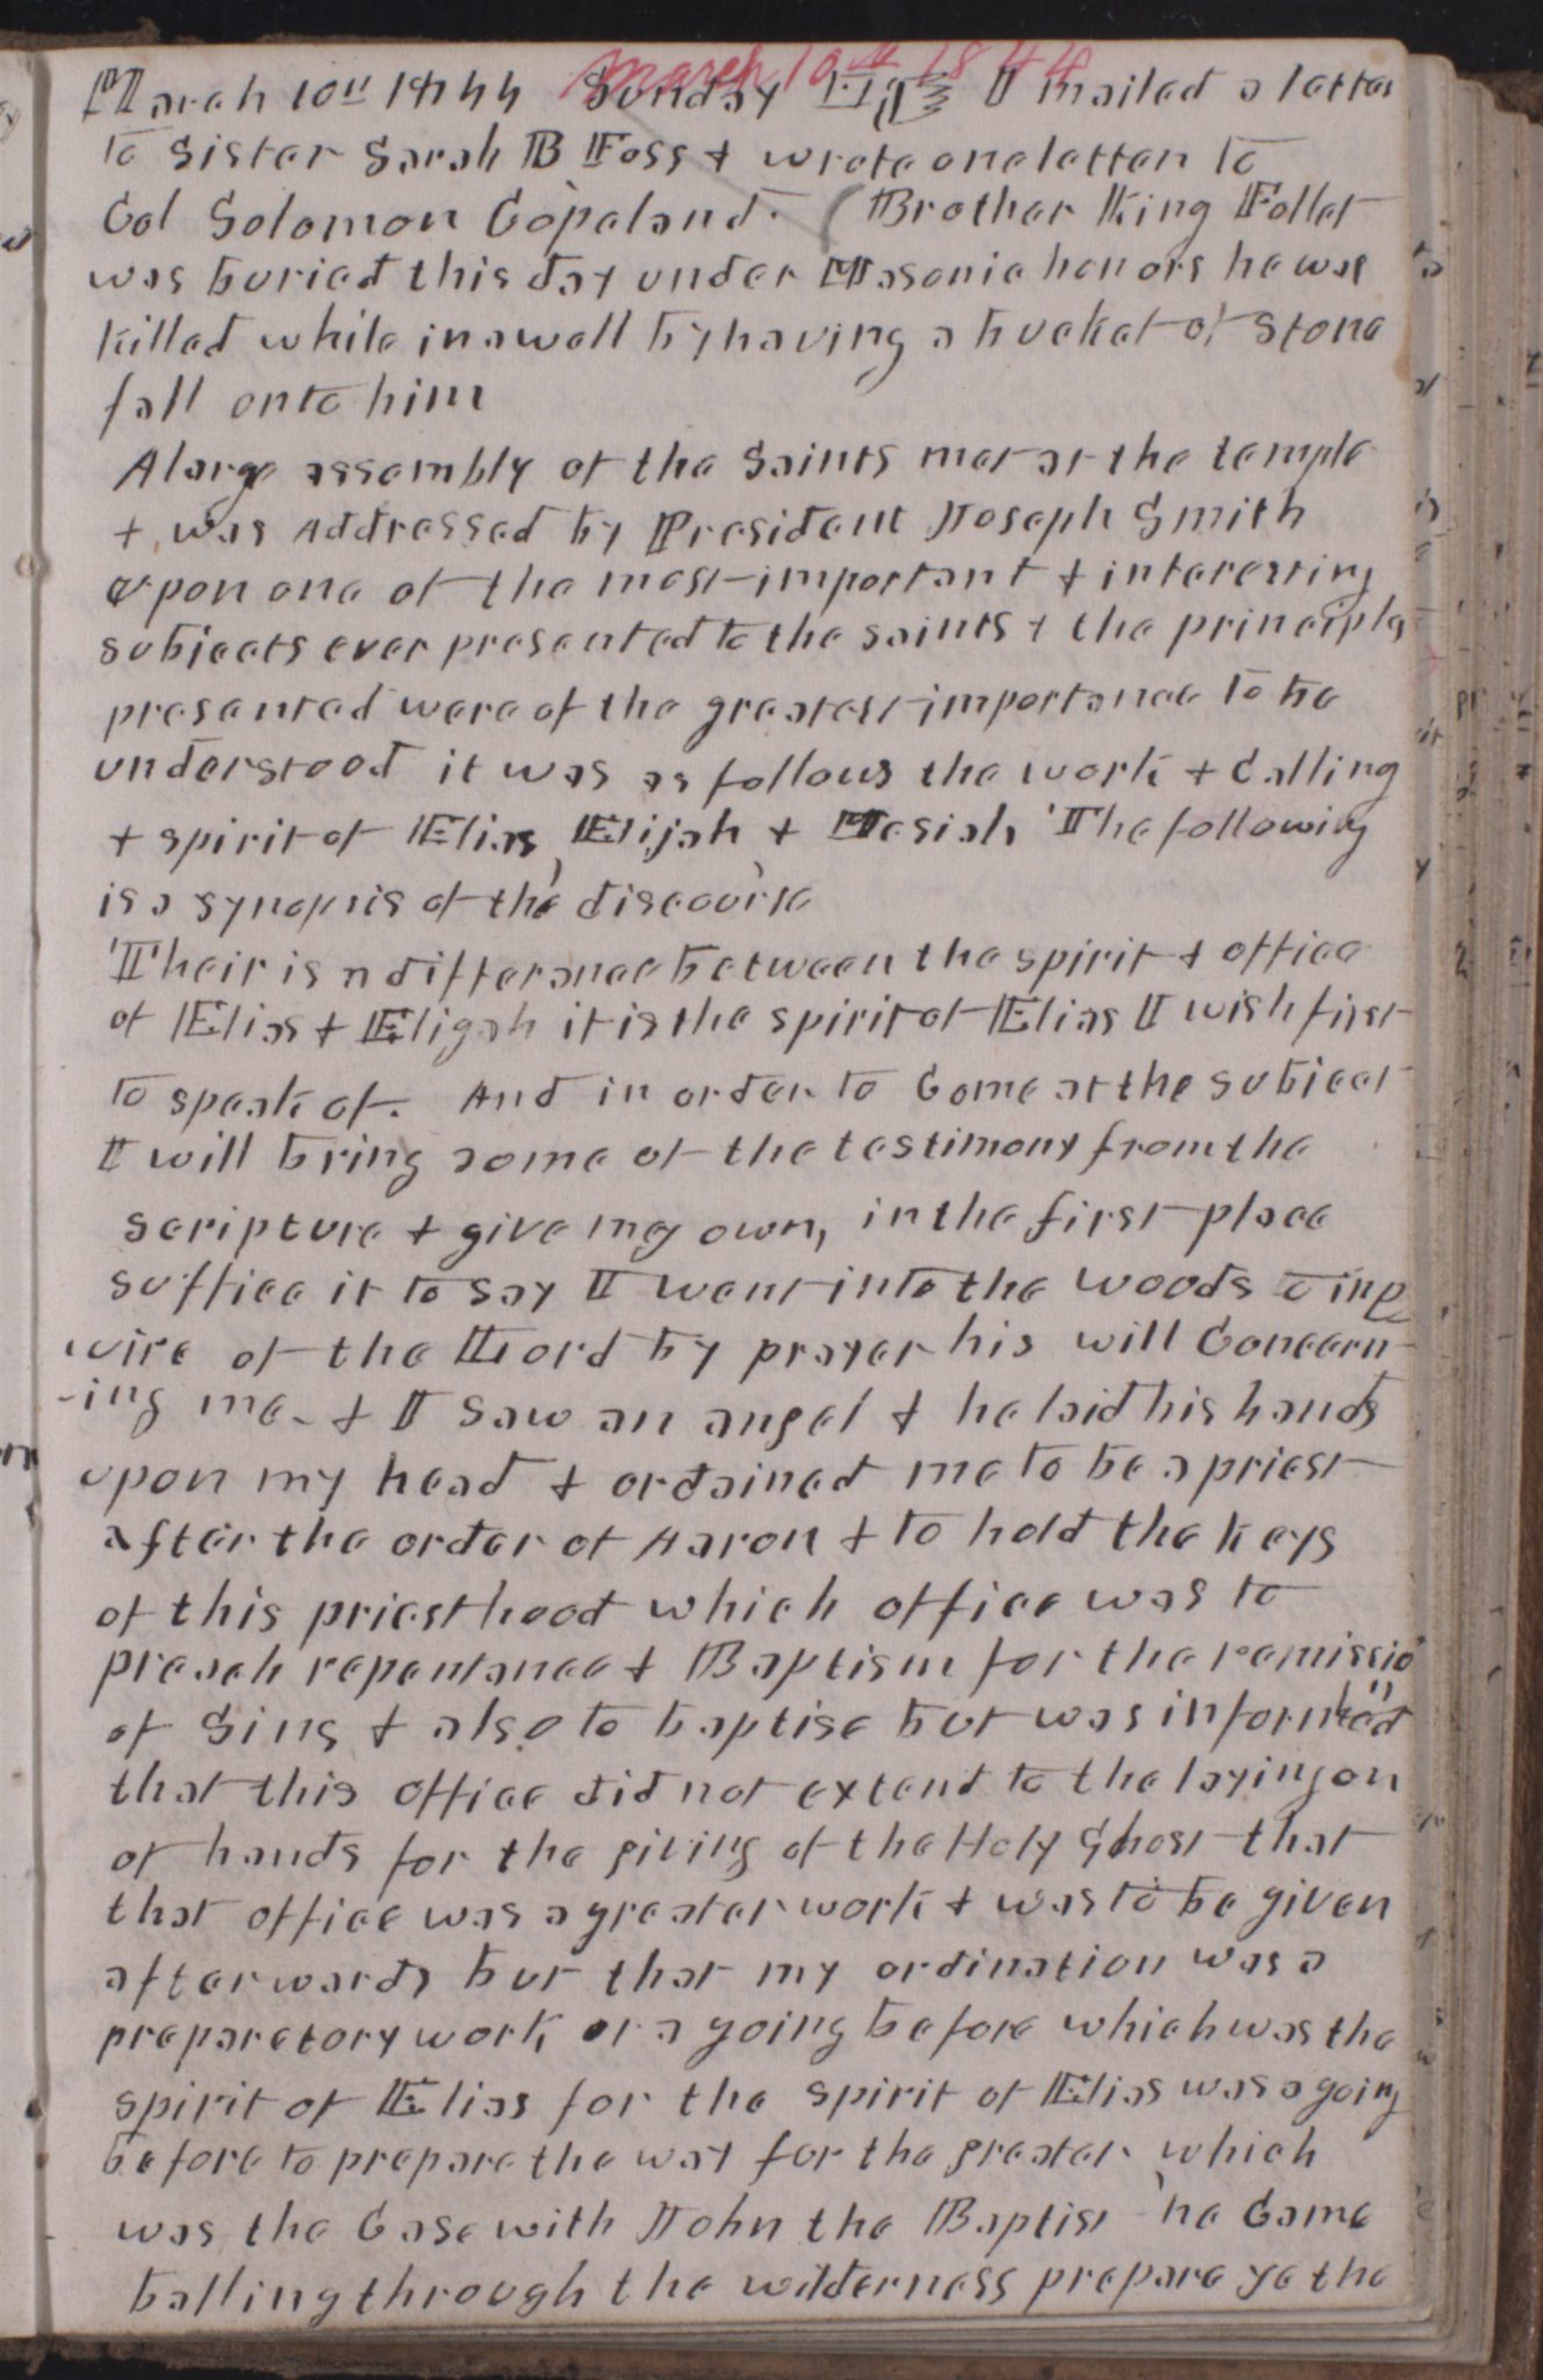 March 10th 1844
March 10th 1844 Sunday I mailed a letter
to Sister Sarah B Foss & wrote one letter to
Col Solomon Copeland. (Brother King Follet
was buried this day under Masonic honors he was
killed while in a well by having a bucket of Stone
fall onto him
A large assembly of the Saints met at the temple
& was Addressed by President Joseph Smith
upon one of the most important & interesting
subjects ever presented to the saints & the principles
presented were of the greatest importance to be
understood it was as follows the work & Calling
& spirit of Elias, Elijah & Mesiah, The following
is a synopsis of the discourse
Their is a differance between the spirit & office
of Elias & Eligah it is the spirit of Elias I wish first
to speak of. And in order to Come at the subject
I will bring some of the testimony from the
scripture & give my own, in the first place
suffice it to say I went into the woods to inq
uire of the Lord by prayer his will Concern-
-ing me. & I saw an angel & he laid his hands
upon my head & ordained me to be a priest
after the order of Aaron & to hold the keys
of this priesthood which office was to
preach repentance & Baptism for the remission
of Sins & also to baptise but was informed
that this office did not extend to the laying on
of hands for the giving of the Holy Ghost that
that office was a greater work & was to be given
afterwards but that my ordination was a
preparetory work or a going before which was the
spirit of Elias for the spirit of Elias was a going
before to prepare the way for the greater, which
was the Case with John the Baptist he Came
balling through the wilderness prepare ye the